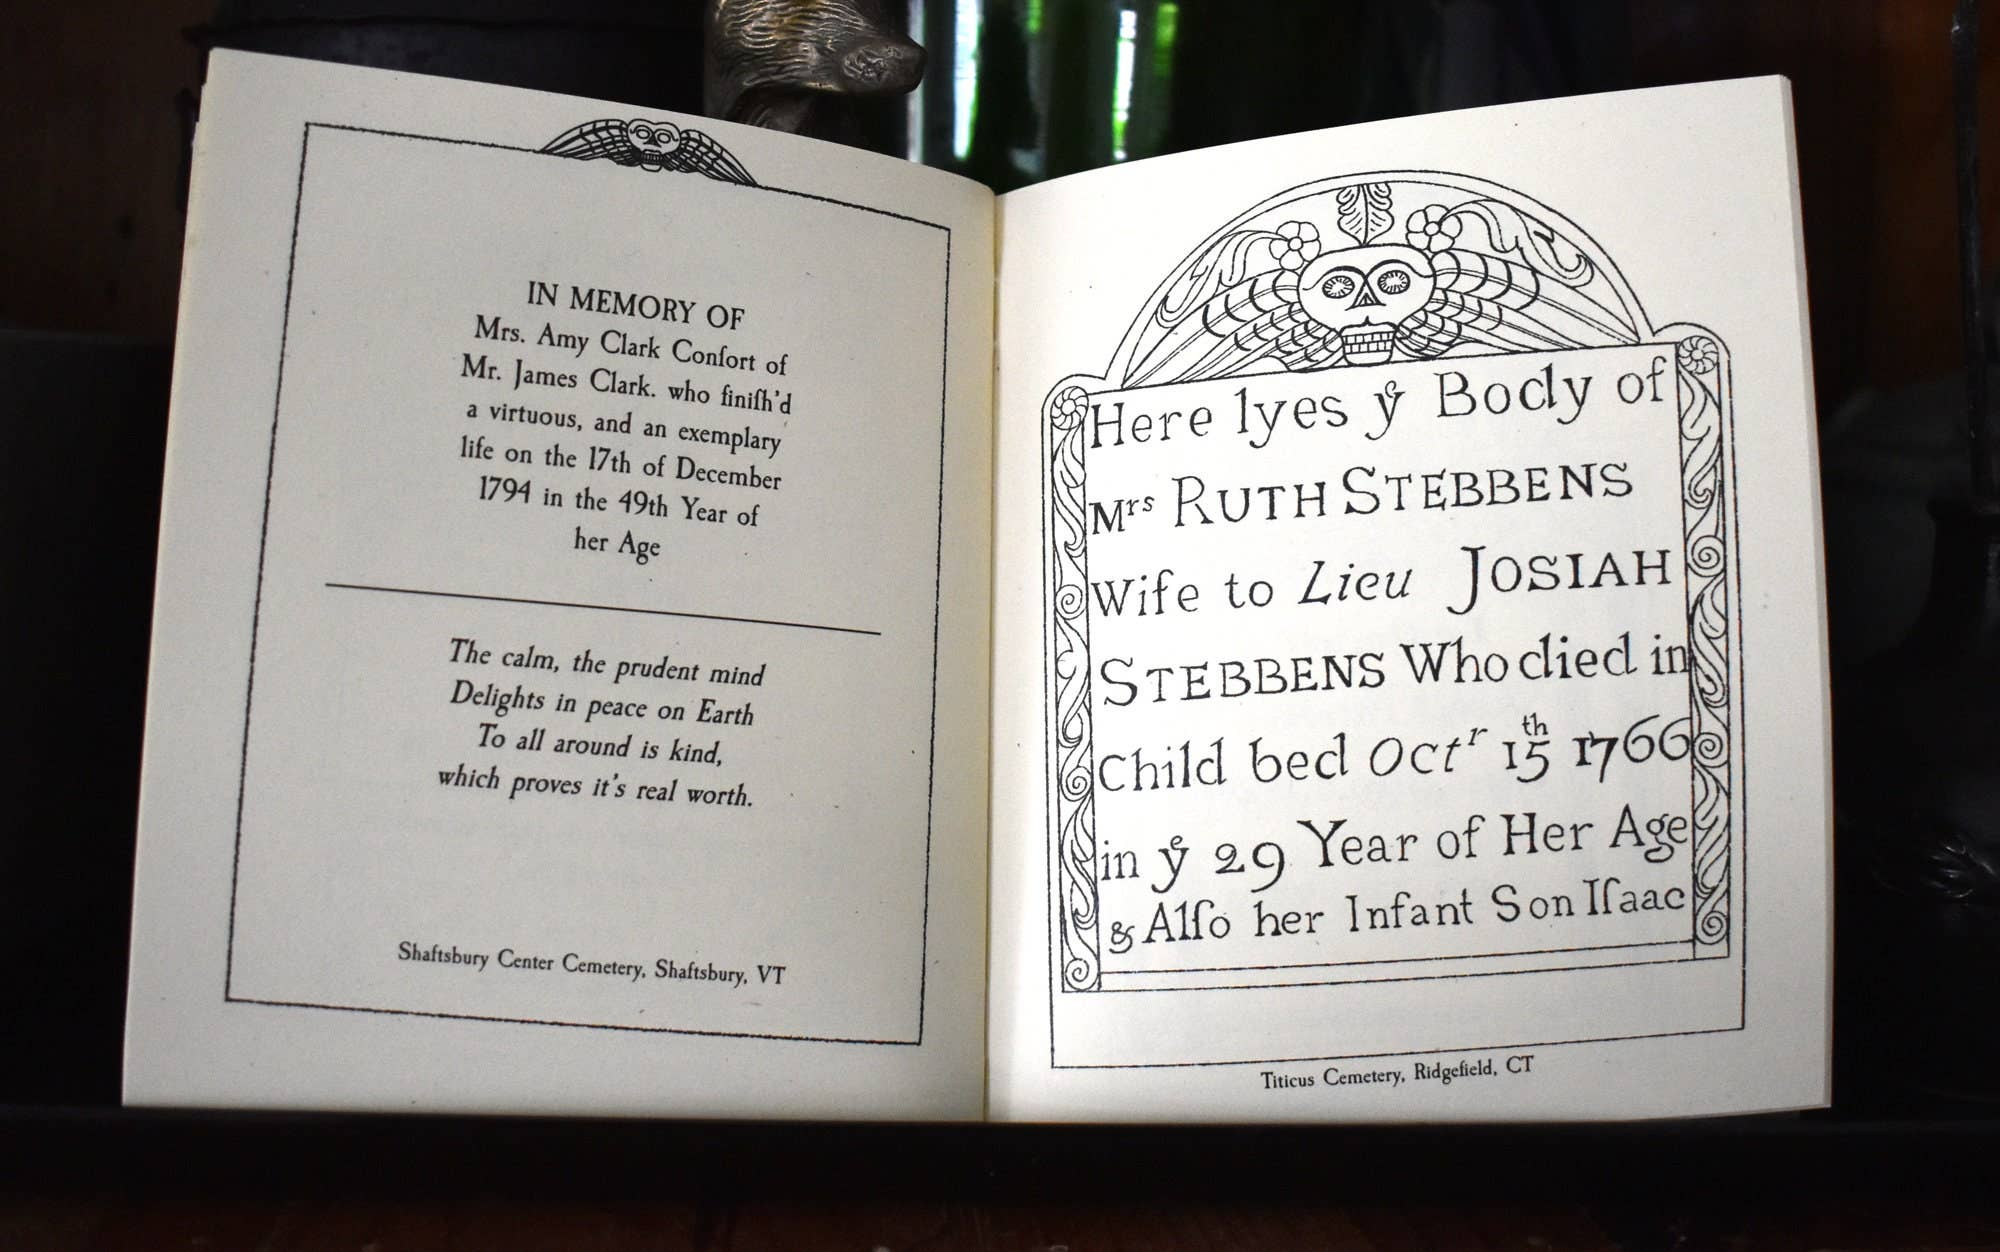 IN MEMORY OF
Mrs. Amy Clark Conſort of
Mr. James Clark. who finiſh'd
a virtuous, and an exemplary
life on the 17th of December
1794 in the 49th Year of
her Age
The calm, the prudent mind
Delights in peace on Earth
To all around is kind,
which proves it's real worth.
Shaftsbury Center Cemetery, Shaftsbury, VT
Here lyes yͤ Body of
Mrs RUTH STEBBENS
Wife to Lieu JOSIAH
STEBBENS Who died in
Child bed Octr 15th 1766
in yͤ 29 Year of Her Age
& Alſo her Infant Son Iſaac
Titicus Cemetery, Ridgefield, CT